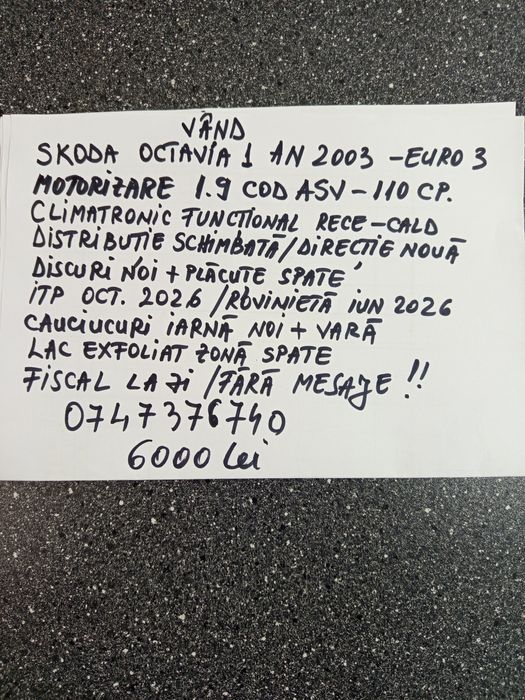 VÂND
SKODA OCTAVIA 1 AN 2003 - EURO 3
MOTORIZARE 1.9 COD ASV - 110 CP.
CLIMATRONIC FUNCȚIONAL RECE - CALD
DISTRIBUTIE SCHIMBATĂ / DIRECTIE NOUĂ
DISCURI NOI + PLĂCUTE SPATE
ITP OCT. 2026 / ROVINIETĂ IUN 2026
CAUCIUCURI IARNĂ NOI + VARĂ
LAC EXFOLIAT ZONĂ SPATE
FISCAL LA ZI / FĂRĂ MESAJE !!
0747376740
6000 lei